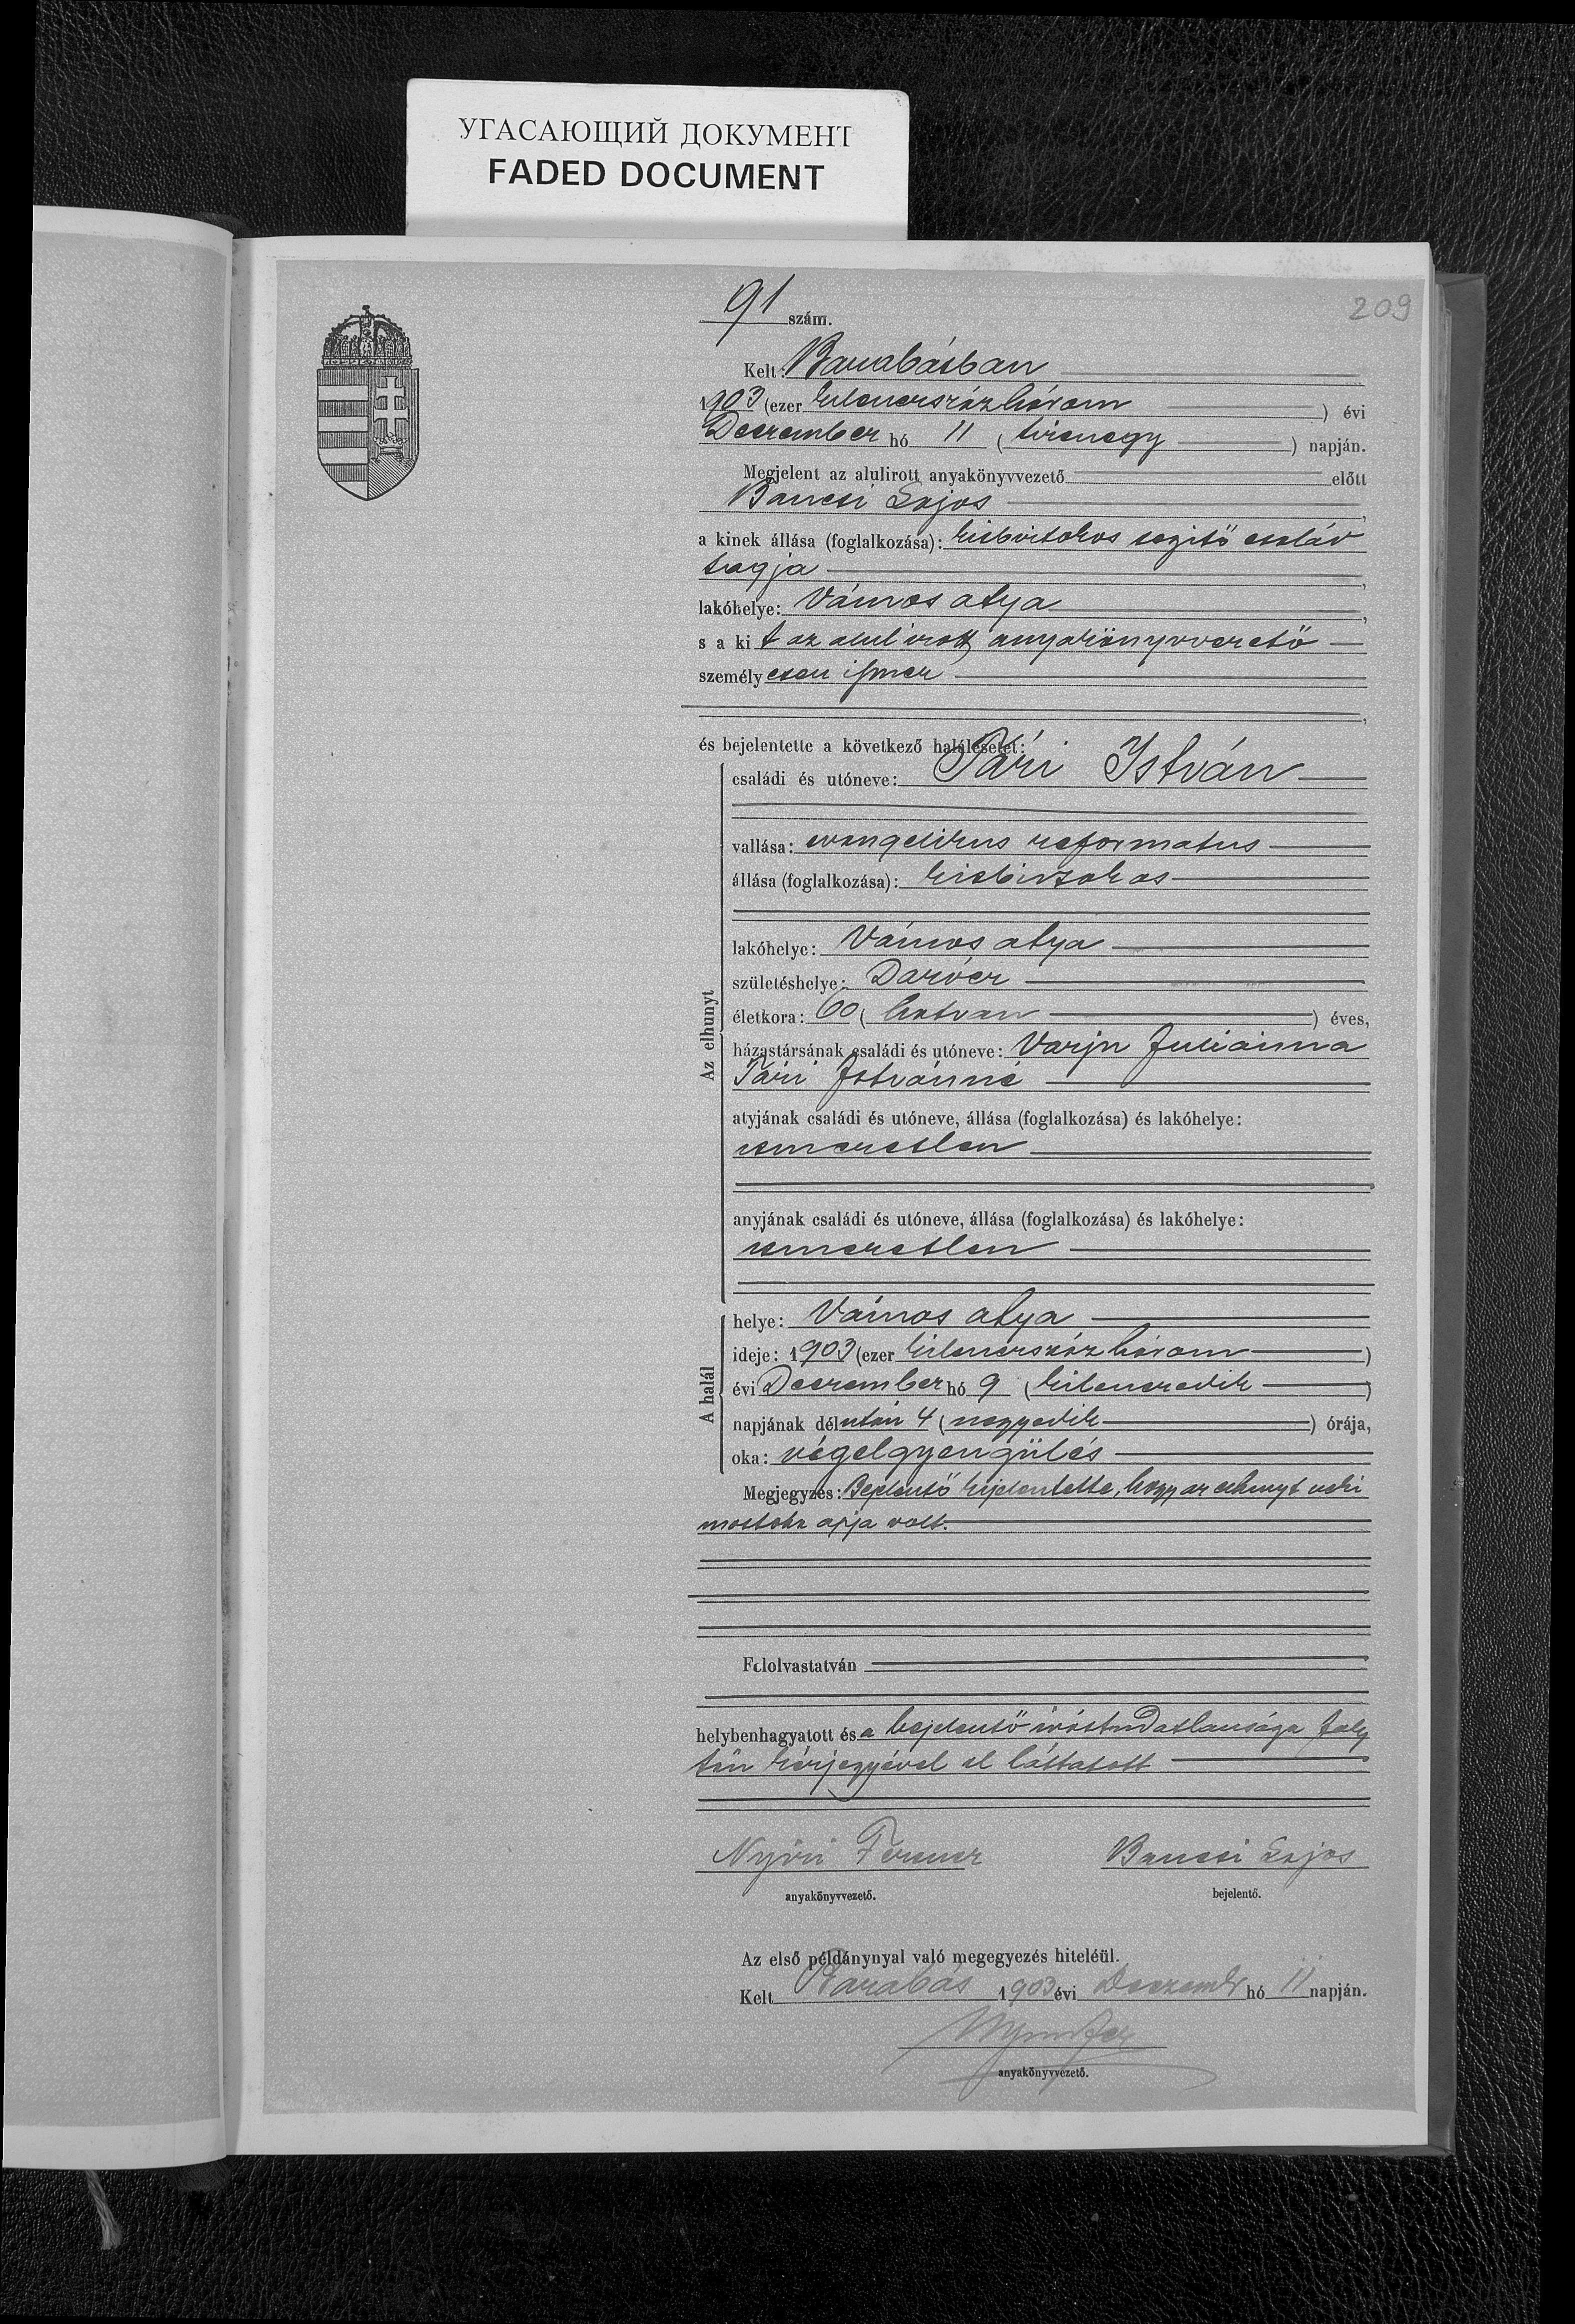 УГАСАЮЩИЙ ДОКУМЕНТ
FADED DOCUMENT
209
91 szám.
Kelt: Barabásban
1903 (ezer kilenczszázhárom) évi
Deczember hó 11 (tizenegy) napján.
Megjelent az alulirott anyakönyvvezető előtt
Bancsi Lajos,
a kinek állása (foglalkozása): kisbirtokos segitő család
tagja,
lakóhelye: Vámos atya,
s a kit az alul irott anyakönyvvezető
személyesen ismer
,
és bejelentette a következő halálesetet:
családi és utóneve: Pári István
vallása: evangelikus reformatus
állása (foglalkozása): kisbirtokos
lakóhelye: Vámos atya
születéshelye: Darócz
életkora: 60 (hatvan) éves,
házastársának családi és utóneve: Varju Juliánna
Pári Istvánné
atyjának családi és utóneve, állása (foglalkozása) és lakóhelye:
ismeretlen
anyjának családi és utóneve, állása (foglalkozása) és lakóhelye:
ismeretlen
Az elhunyt
helye: Vámos atya
ideje: 1903 (ezer kilenczszázhárom)
évi Deczember hó 9 (kilenczedik)
napjának délután 4 (negyedik) órája,
oka: végelgyengülés
A halál
Megjegyzés: Bejelentő kijelentette, hogy az elhunyt neki
mostoha apja volt.
Felolvastatván
helybenhagyatott és a bejelentő irástudatlansága foly
tán kézjegyével el láttatott
Nyiri Ferencz Bancsi Lajos
anyakönyvvezető. bejelentő.
Az első példánynyal való megegyezés hiteléül.
Kelt Barabás 1903 évi Deczembr hó 11 napján.
anyakönyvvezető.